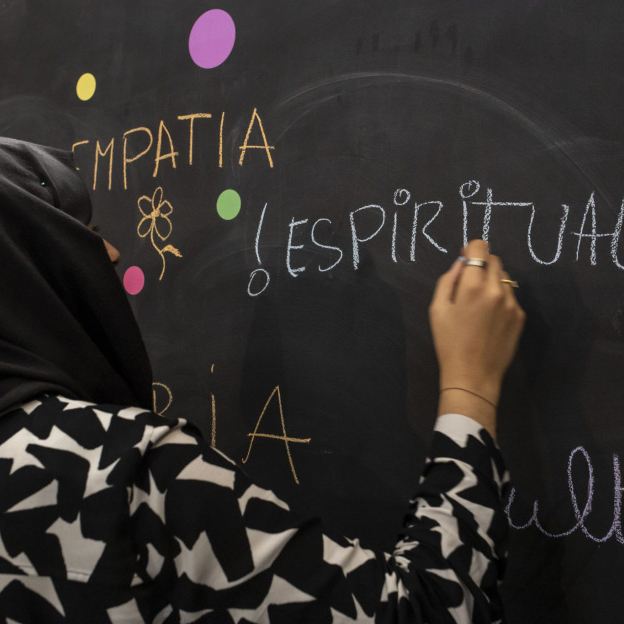 EMPATIA
!ESPIRITUAL
RiA
ult